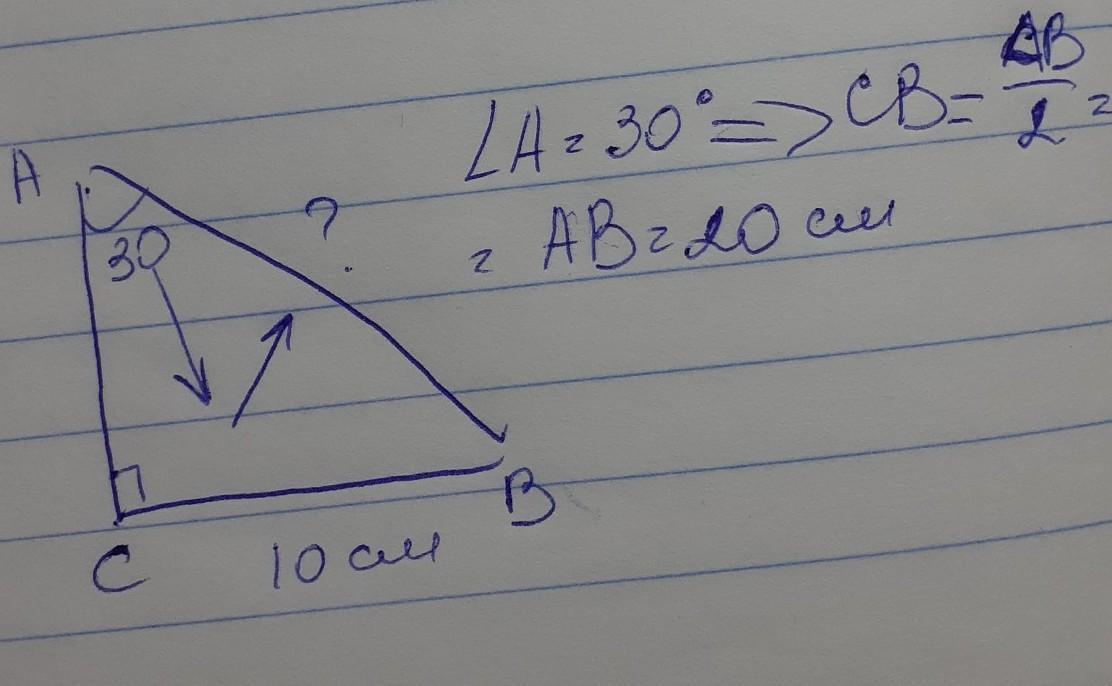 ∠A = 30° => CB = AB/2 =
= AB = 20 см
A
30
?
C
B
10 см